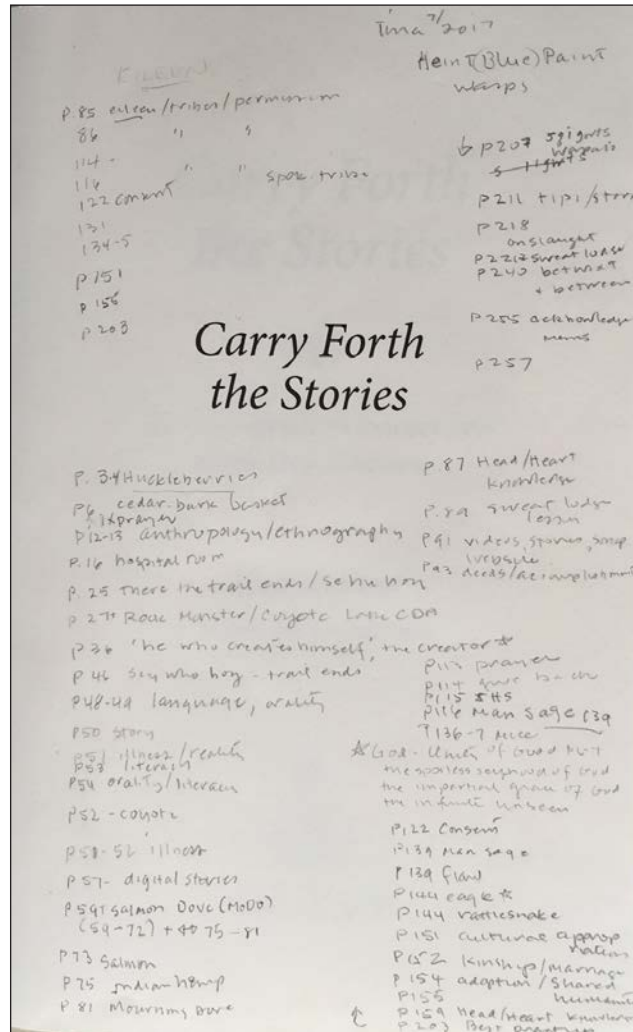 Tina 7/2017
Hein (Blue) Paint
wasps
EILEEN
P.85 eileen/tribes/permission
86 " "
114 -
116
122 consent " " spok tribe
131
134-5
P151
P 155
P 203
P207 5 giants
P211 tipi/story
P218
onslaught
P221 sweat lodge
P240 betwixt
+ between
P255 acknowledge
P257
Carry Forth
the Stories
P. 34 Huckleberries
P6 cedar bark basket
prayer
P12-13 anthropology/ethnography
P.16 hospital room
P. 25 There the trail ends/
P 27 Rock Monster/Coyote Lake CDA
P36 'he who creates himself', the creator ☆
P 46 - trail ends
P48-49 language, orality
P50 story
P51 illness/reality
P53 literacy
P54 orality/literacy
P52 - coyote
P50-52 illness
P57- digital stories
P59+ Salmon Dove (MoDo)
(59-72) + 75-81
P73 Salmon
P75 Indian hemp
P 81 Mourning Dove
P.87 Head/Heart
Knowledge
P.89 sweat lodge
lesson
P91 videos, stories, songs
website
P93 deeds/accomplishments
P113 prayer
P114 give back
P115 SHS
P116 Man Sage 139
P136-7 Mice
☆ God - Unity of Good
the spotless selfhood of God
the impartial grace of God
the infinite Unseen
P122 Consent
P139 Man Sage
P139 flaw
P144 eagle ☆
P144 rattlesnake
P151 cultural approp
riation
P152 Kinship/Marriage
P154 adoption/Shared
P155 humanity
P159 Head/Heart Knowledge
P203 Best Practices